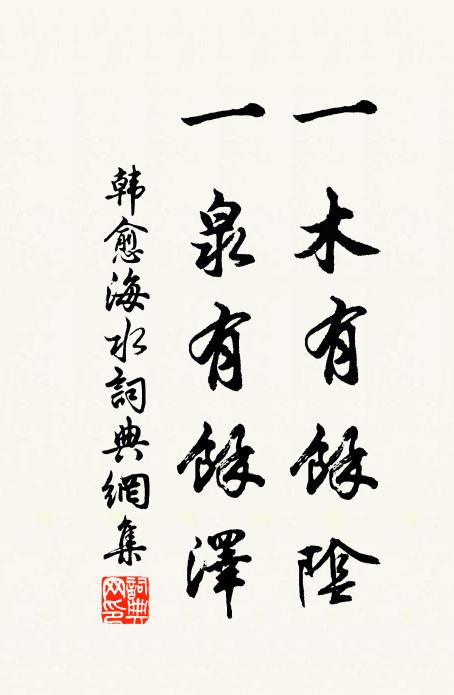 一木有餘陰
一泉有餘澤
韩愈海水詞典網集
詞典网印